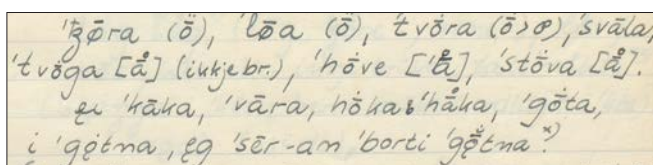 'ꜩøra (ȫ), 'lø̄a (ȫ), 'tvȱra (ȱ>ø), 'svāla,
'tvȱga [å̄] (ikkje br.), 'hȱve ['å̄], 'stȱva [å̄].
ei 'kāka, 'vāra, hȱka: 'hå̄ka, 'gȱta,
i 'gọ̈tna, ęg 'sēr-an 'borti 'gọ̈tna x)?